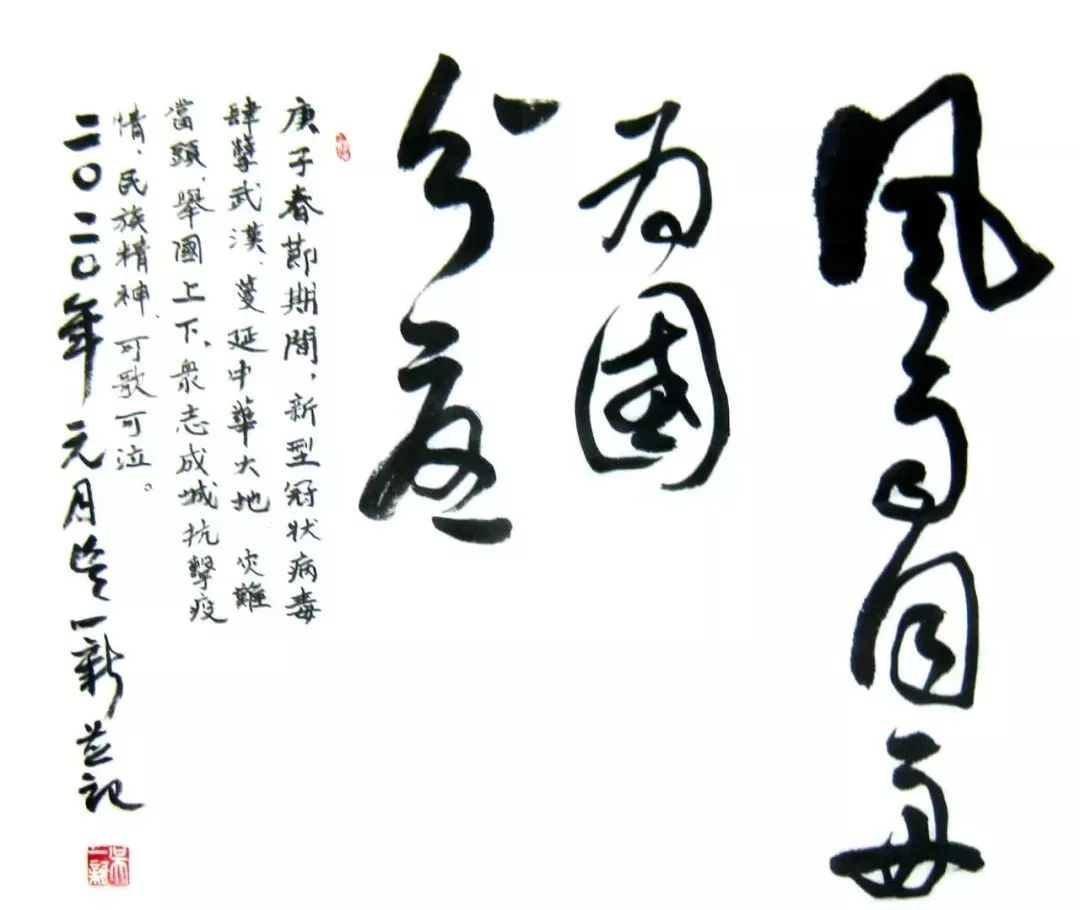 風雨同舟
为國
分憂
庚子春節期間，新型冠状病毒
肆孽武漢、蔓延中華大地 灾難
當頭，舉國上下、衆志成城抗擊疫
情，民族精神、可歌可泣。
二〇二〇年元月吴一新並記
吴一新